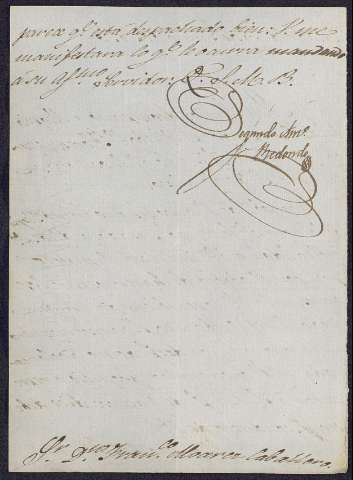 parece qe. está desprobado bien: V. me
manifestara lo qe. mandando
á su afmo. Servidor Q. S. M. B.
Segundo Anto.
Redondo
Sr. Dn. Franco. Alvarez Caballero.